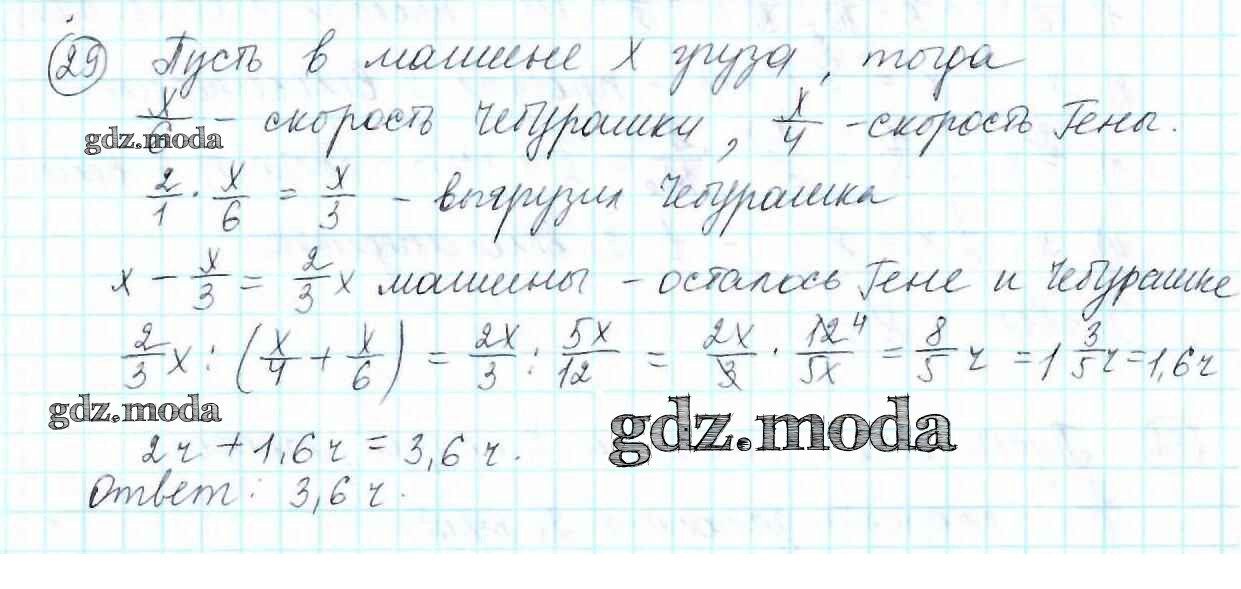 29 Пусть в машине x груза, тогда
x/6 - скорость Чебурашки, x/4 - скорость Гены.
gdz.moda
2/1 · x/6 = x/3 - выгрузил Чебурашка
x - x/3 = 2/3 x машины - осталось Гене и Чебурашке
2/3 x : (x/4 + x/6) = 2x/3 : 5x/12 = 2x/3 · 12 4/5x = 8/5 ч = 1 3/5 ч = 1,6 ч
gdz.moda
gdz.moda
2ч + 1,6ч = 3,6ч.
Ответ: 3,6ч.